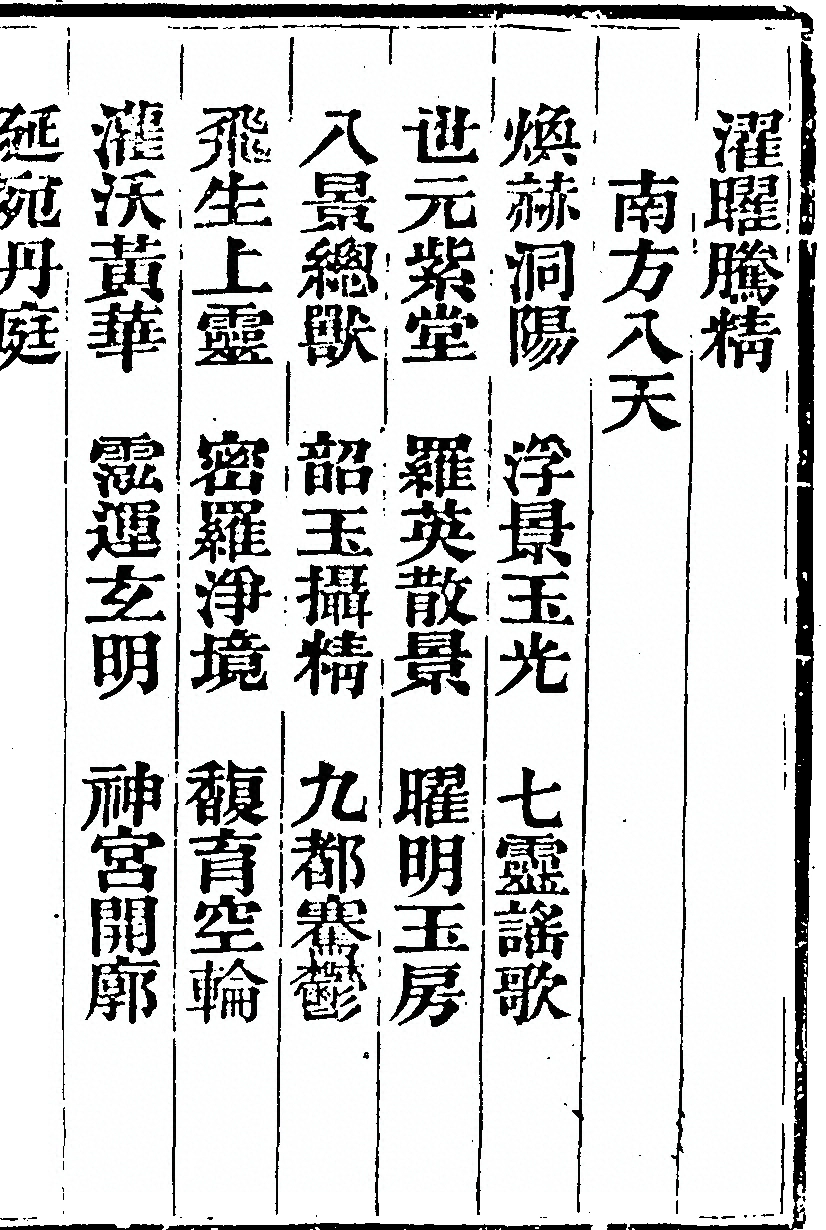 濯曜騰精
南方八天
煥赫洞陽 浮景玉光 七靈謠歌
世元紫堂 羅英散景 曜明玉房
八景總獸 韶玉攝精 九都騫鬱
飛生上靈 密羅淨境 馥育空輪
灌沃黃華 運玄明 神宮開廓
延宛丹庭